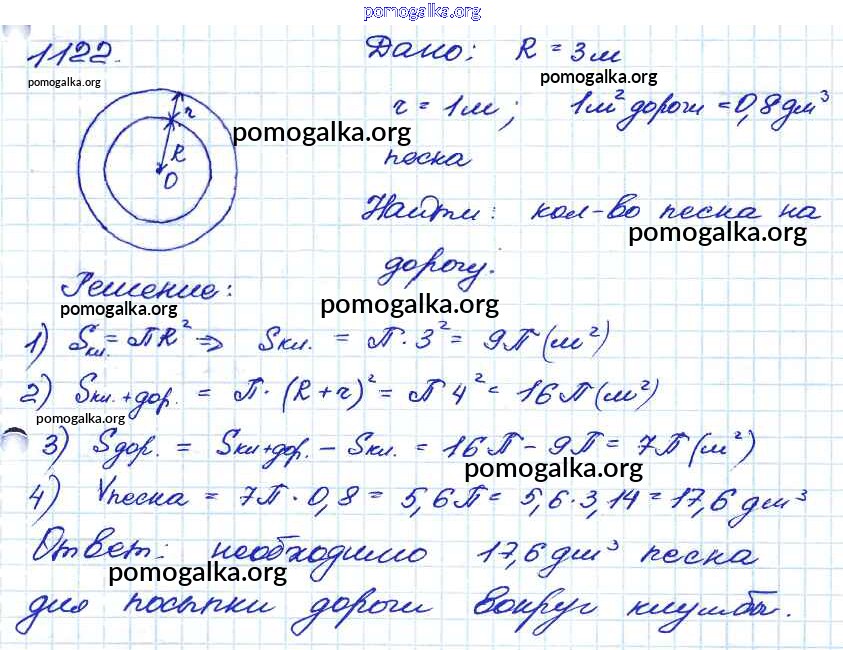 pomogalka.org
1122.
pomogalka.org
Дано: R = 3м
pomogalka.org
r = 1м; 1м² дороги = 0,8 дм³
pomogalka.org
песка
r
R
O
Найти: кол-во песка на
pomogalka.org
дорогу.
Решение:
pomogalka.org
pomogalka.org
1) Sкл. = πR² ⇒ Sкл. = π · 3² = 9π (м²)
2) Sкл.+дор. = π · (R + r)² = π 4² = 16π (м²)
pomogalka.org
3) Sдор. = Sкл+дор. - Sкл. = 16π - 9π = 7π (м²)
pomogalka.org
4) Vпеска = 7π · 0,8 = 5,6π = 5,6 · 3,14 = 17,6 дм³
Ответ: необходимо 17,6 дм³ песка
pomogalka.org
для посыпки дороги вокруг клумбы.